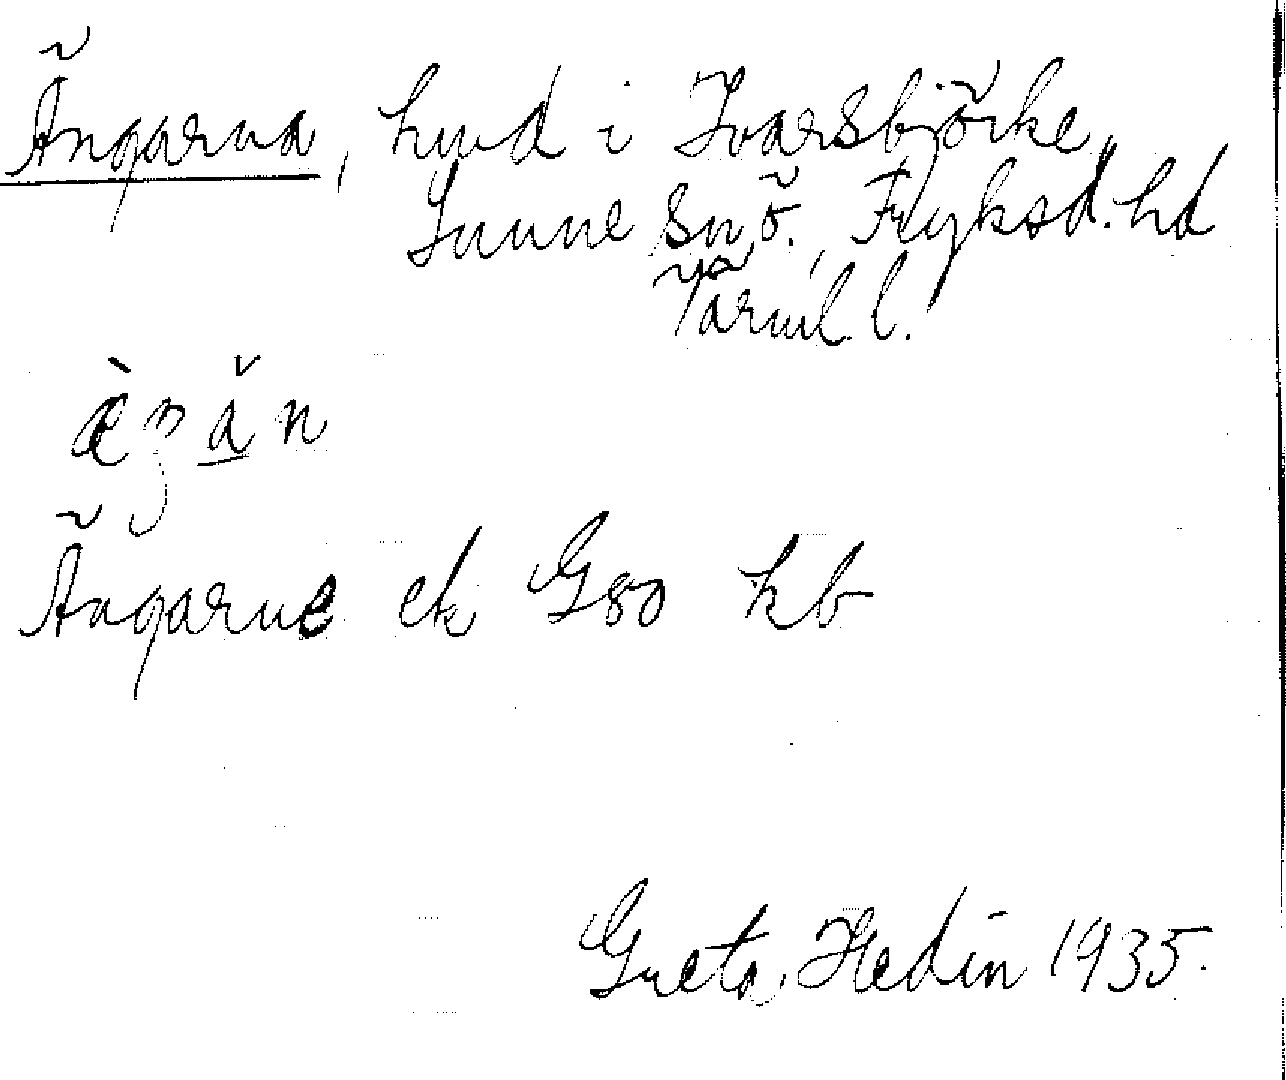 Ängarna, hmd i Ivarsbjörke,
Sunne sn, ö. Fryksd. hd
Värml. l.
Ängarne ek G80 kb
Greta Hedin 1935.